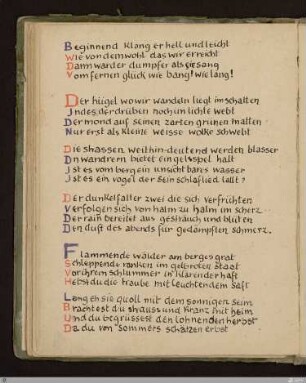 Beginnend klang er hell und leicht
Wie von dem wohl das wir erreicht
Dann ward er dumpfer als er sang
Vom fernen glück wie bang! wie lang!
Der hügel wo wir wandeln liegt im schatten
Indes der drüben noch im lichte webt
Der mond auf seinen zarten grünen matten
Nur erst als kleine weisse wolke schwebt
Die strassen weithin-deutend werden blasser
Den wandrern bietet ein gelispel halt
Ist es vom berg ein unsichtbares wasser
Ist es ein vogel der sein schlaflied lallt?
Der dunkelfalter zwei die sich verfrühten
Verfolgen sich von halm zu halm im scherz
Der rain bereitet aus gesträuch und blüten
Den duft des abends für gedämpften schmerz.
Flammende wälder am bergesgrat
Schleppende ranken im gelbroten staat
Vor ihrem schlummer in klärender haft
Hebst du die traube mit leuchtendem saft
Lang eh sie quoll mit dem sonnigen seim
Brachtest du strauss und kranz mit heim
Und du begrüssest den lohnenden herbst
Da du von sommers schätzen erbst